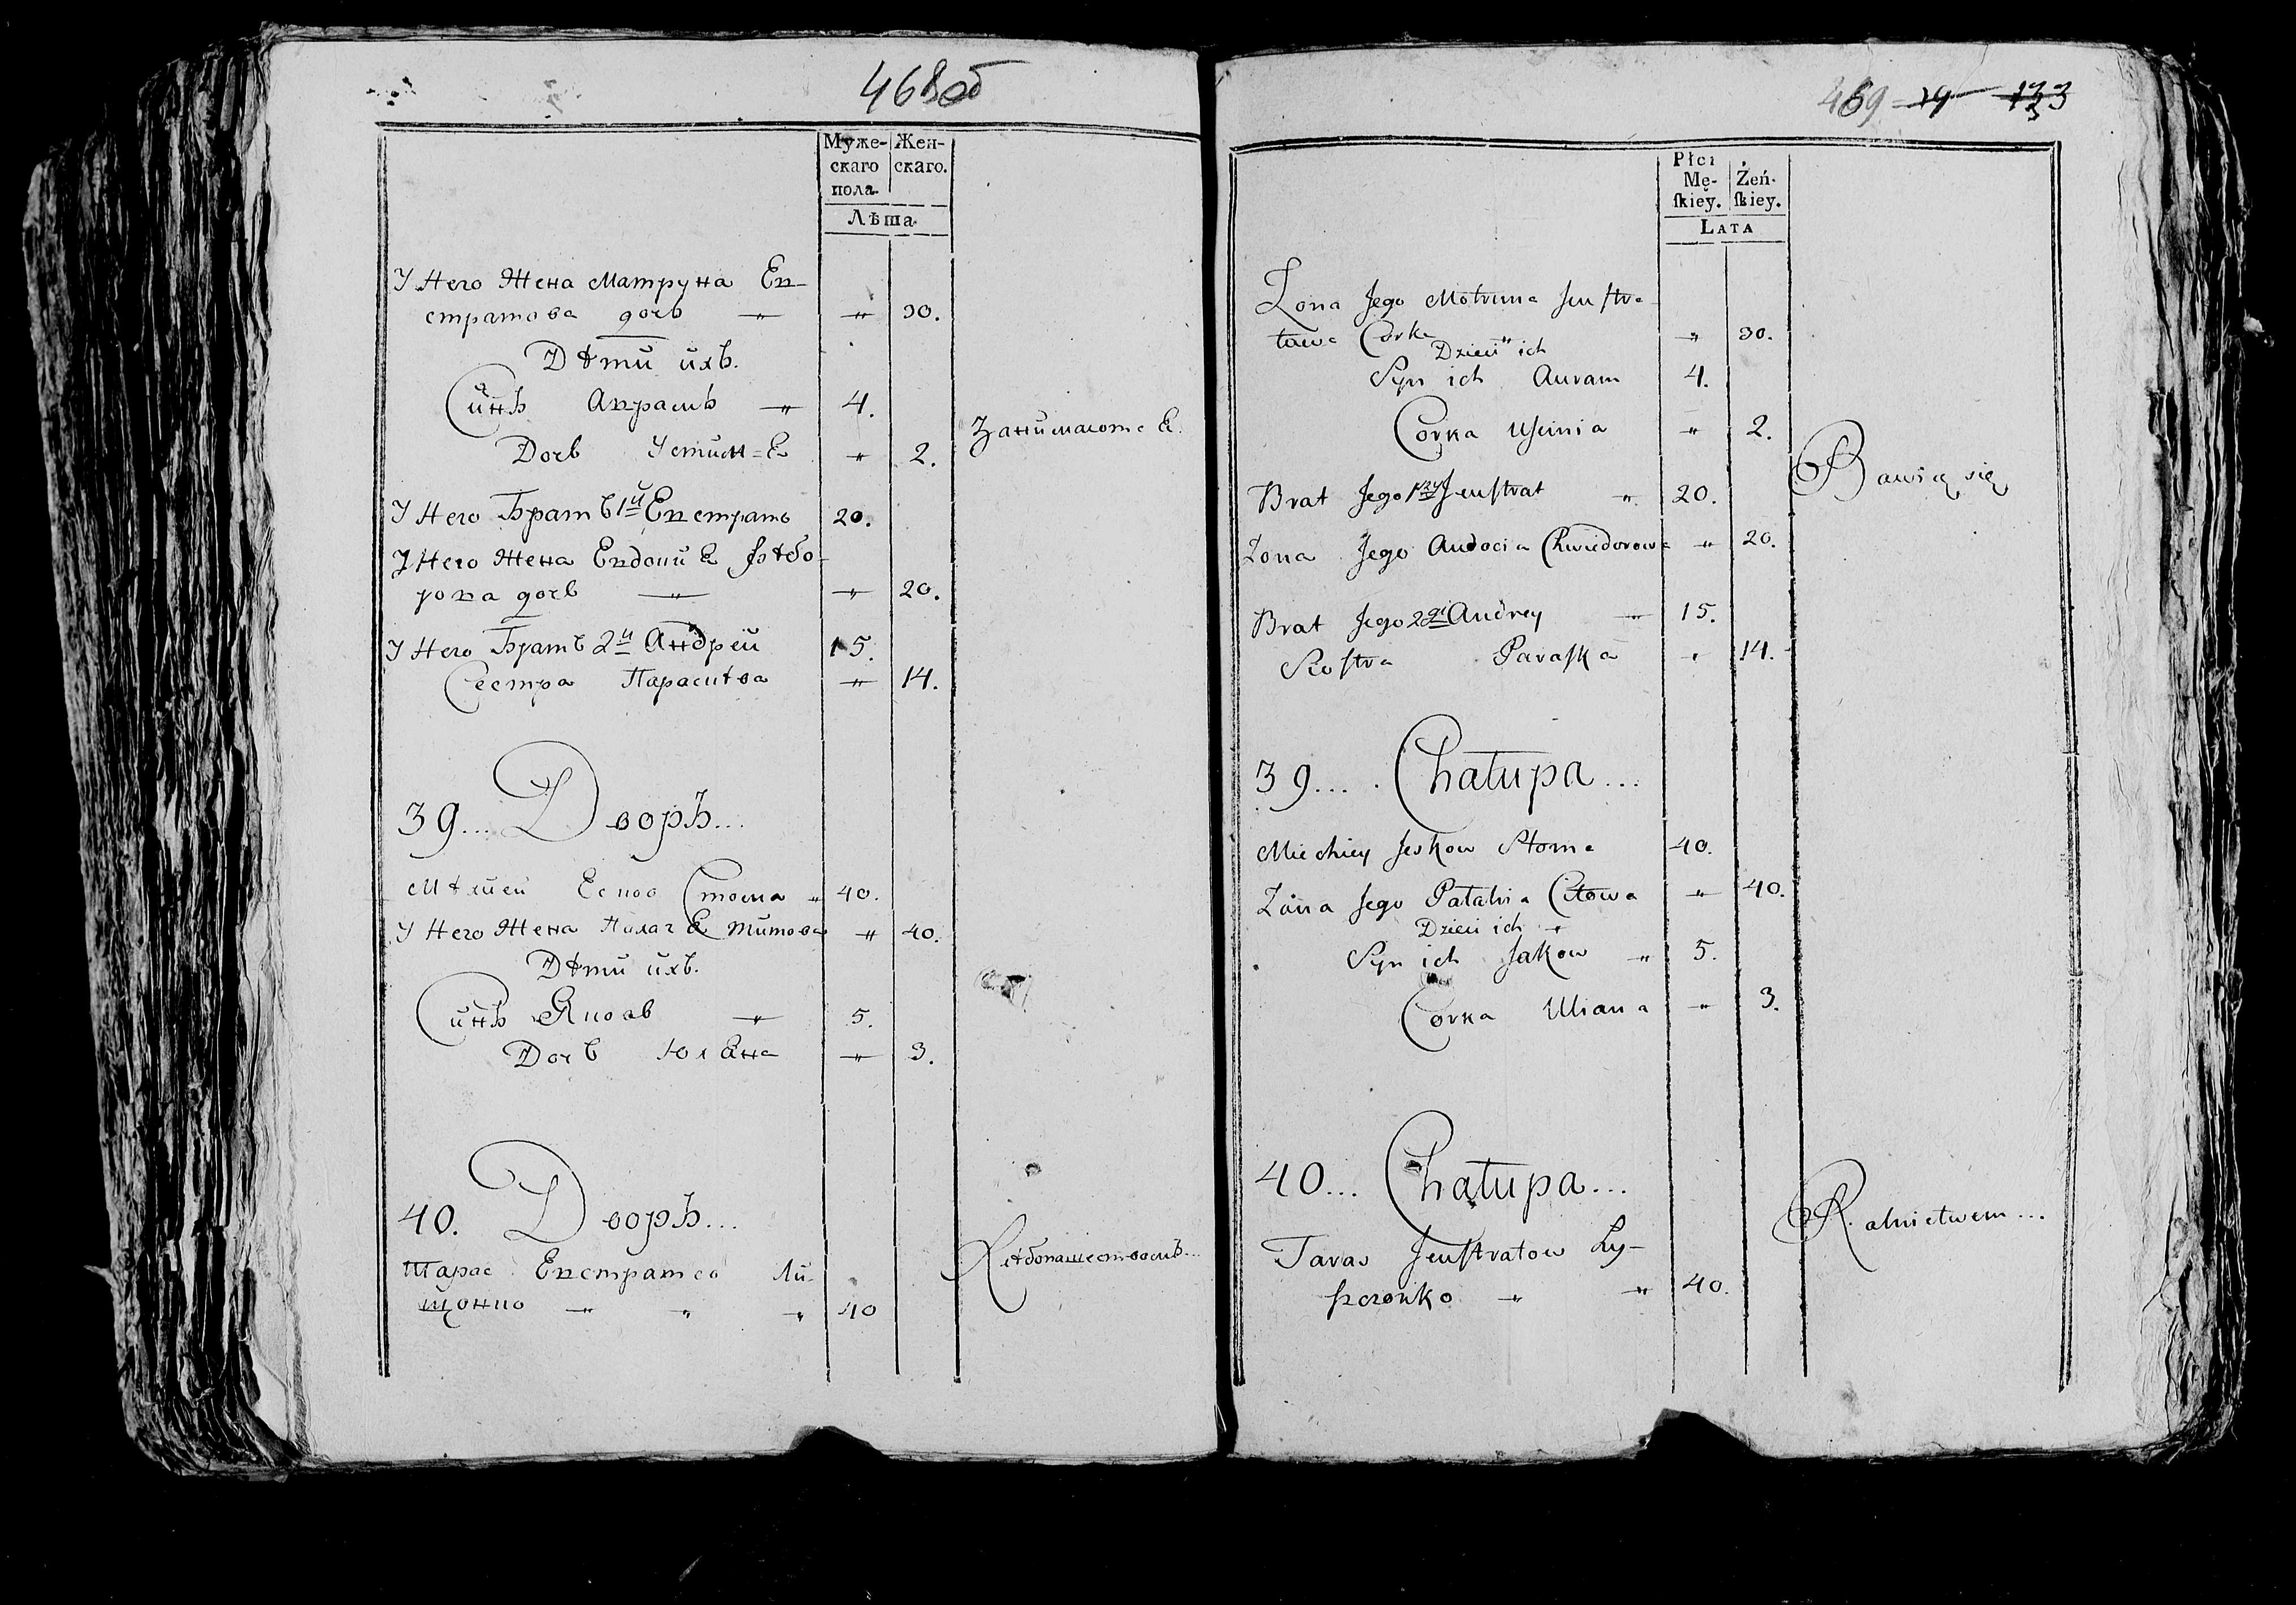 468об
Муже-
скаго
пола.
Жен-
скаго.
Лѣта
У Него Жена Матруна Ев-
стратова дочь „ „ 30.
Дѣти ихъ.
Синъ Аврамъ „ 4.
Дочь Устин=Я „ 2.
Занимаютсе Я.
У Него Братъ 1й Евстратъ 20.
У Него Жена Евдоки Я Fѣдо-
рова дочь „ „ 20.
У Него Братъ 2й Андрей 15.
Сестра Парасиѣва „ 14.
39... Дворъ...
Мѣхией Есков Стома „ 40.
У Него Жена Пилаг Я Титова „ 40.
Дѣти ихъ.
Синъ Яковъ „ 5.
Дочь Юляна „ 3.
40. Дворъ...
Тарас Евстратов Ли-
щонко „ „ „ 40
Хлѣбопашествомъ...
469 19 133
Płci
Mę-
ſkiey.
Żeń-
ſkiey.
Lata
Zona Jego Motruna Jewſtra-
towa Corka „ „ 30.
Dzieci ich
Syn ich Auram 4.
Corka Uſcinia „ 2.
Bawią się
Brat Jego 1szy Jewſtrat „ 20.
Zona Jego Audocia Chwiedorowa „ 20.
Brat Jego 2gi Andrey „ 15.
Sioſtra Paraſka „ 14.
39.... Chałupa...
Miechiey Jeskow Stoma 40.
Zona Jego Pałahia Citowa „ 40.
Dzieci ich „
Syn ich Jakow „ 5.
Corka Uliana „ 3.
40... Chałupa...
Taras Jewſtratow Ly-
ſzczonko „ „ 40.
Rolnictwem...